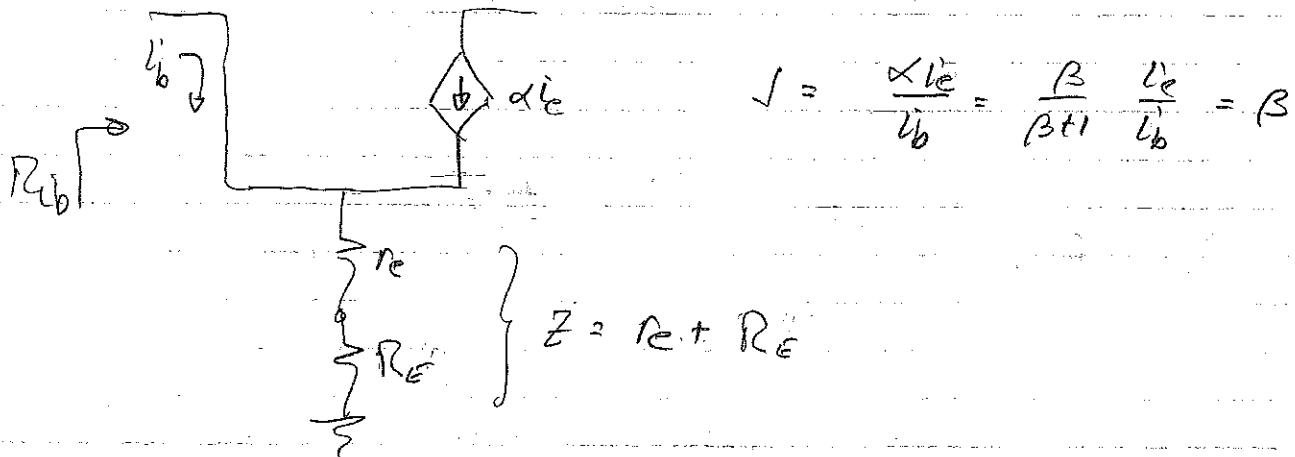 i_b
αi_e
J = αi_e / i_b = β / β+1 i_e / i_b = β
R_ib
r_e
R_E
Z = r_e + R_E